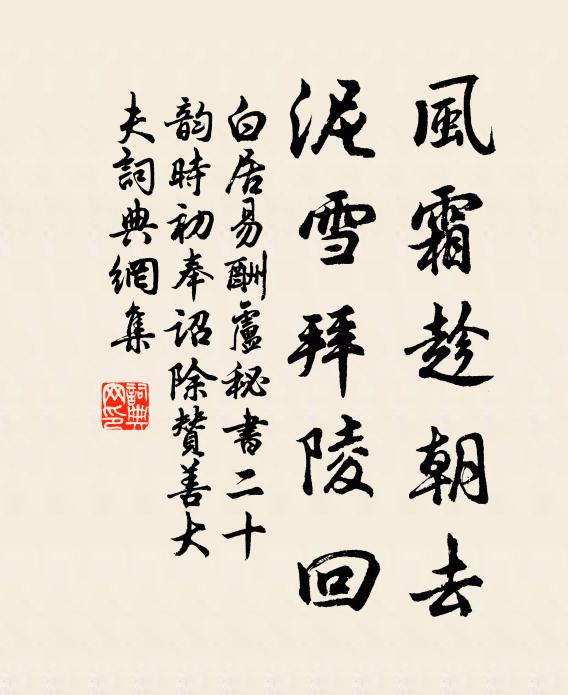 風霜趁朝去
泥雪拜陵回
白居易酬盧秘書二十
韵時初奉詔除贊善大
夫詞典網集
詞典網印